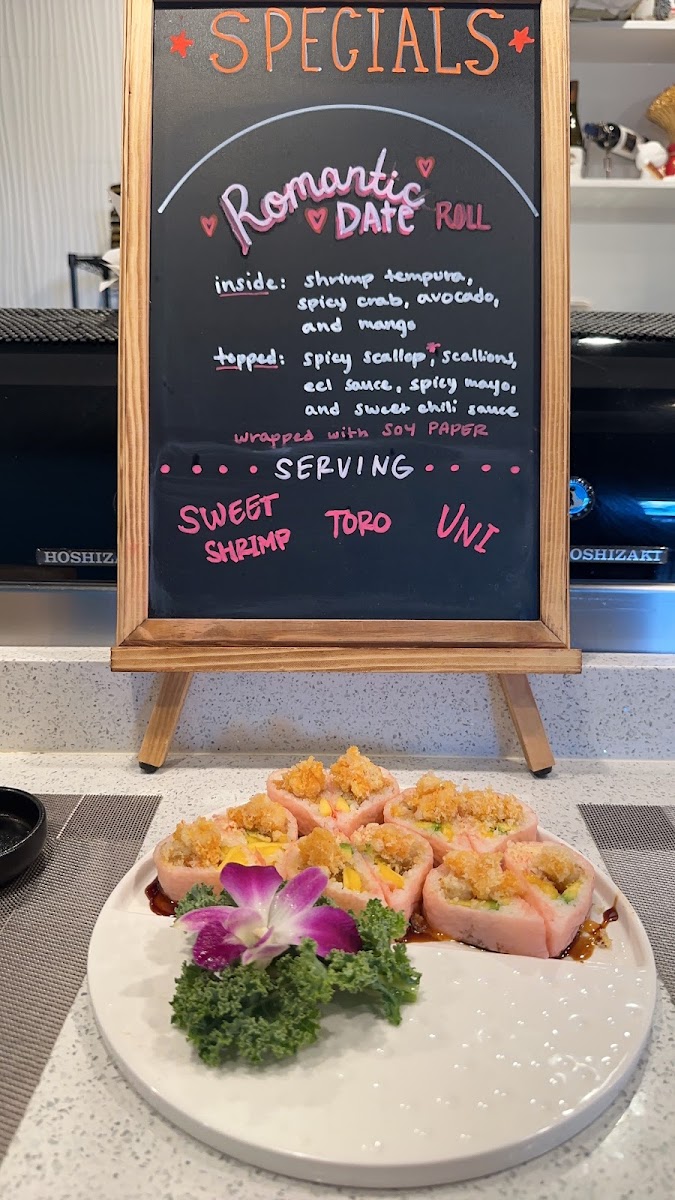 SPECIALS
Romantic
DATE ROLL
inside: shrimp tempura,
spicy crab, avocado,
and mango
topped: spicy scallop*, scallions,
eel sauce, spicy mayo,
and sweet chili sauce
wrapped with SOY PAPER
SERVING
SWEET
SHRIMP
TORO
UNI
HOSHIZA
OSHIZAKI